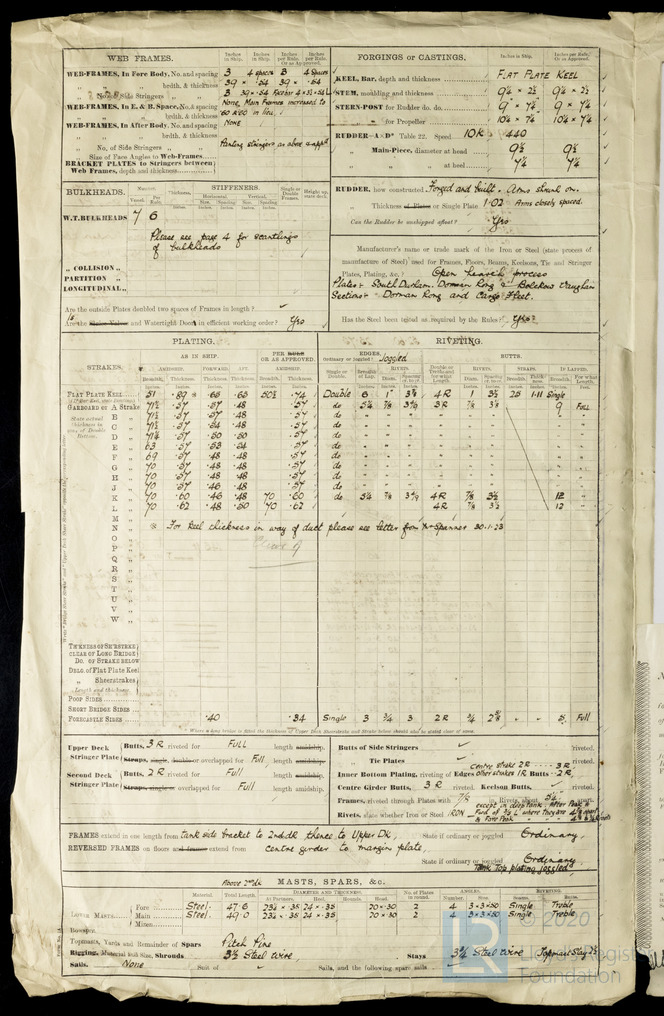 WEB FRAMES.
Inches in Ship. Inches in Ship. Inches per Rule. Or as Approved. Inches per Rule.
WEB-FRAMES, In Fore Body, No. and spacing 3 4 spaces 3 4 spaces
" " brdth. & thickness 39 × .54 39 × .54
No. of Side Stringers
WEB-FRAMES, in E. & B. Space, No. & spacing None, Main Frames increased to
" " brdth. & thickness
WEB-FRAMES, In After Body, No. and spacing None
" " brdth. & thickness
" No. of Side Stringers " " Panting stringers as above
" Size of Face Angles to Web-Frames
BRACKET PLATES to Stringers between
Web Frames, depth and thickness
BULKHEADS.
Number. Thickness. STIFFENERS. Single or Double Frames. Height up, state deck.
Vessel. Per Rule. Horizontal. Vertical.
Size. Spacing Size. Spacing
W.T.BULKHEADS 7 6
Please see page 4 for scantlings
of bulkheads
" COLLISION "
PARTITION "
LONGITUDINAL "
Are the outside Plates doubled two spaces of Frames in length?
Is the Sluice Valves and Watertight Door in efficient working order? Yes
FORGINGS or CASTINGS.
Inches in Ship. Inches per Rule. Or as Approved.
KEEL, Bar, depth and thickness FLAT PLATE KEEL
STEM, moulding and thickness 9¼ × 2½ 9¼ × 2½
STERN-POST for Rudder do. do. 9" × 7¼ 9 × 7¼
" for Propeller 10¼ × 7¼ 10¼ × 7¼
RUDDER—A × D² Table 22. Speed 10K 440
" Main-Piece, diameter at head 9½ 9½
" " at heel 7¼ 7¼
RUDDER, how constructed Forged and built. Arms shrunk on.
" Thickness of Plates or Single Plate 1.02 Arms closely spaced.
Can the Rudder be unshipped afloat? Yes
Manufacturer's name or trade mark of the Iron or Steel (state process of
manufacture of Steel) used for Frames, Floors, Beams, Keelsons, Tie and Stringer
Plates, Plating, &c.? Open hearth process
Plates:- South Durham, Dorman Long & Bolckow Vaughan
Sections:- Dorman Long and Cargo Fleet.
Has the Steel been tested as required by the Rules? Yes
PLATING. RIVETING.
AS IN SHIP. PER RULE OR AS APPROVED. EDGES. Ordinary or joggled? Joggled BUTTS.
STRAKES. AMIDSHIP. FORWARD. AFT. AMIDSHIP. Single or Double. RIVETS. RIVETS. STRAPS. IF LAPPED.
Breadth. Thickness. Thickness. Thickness. Breadth. Thickness. Breadth of Lap. Diam. Diam. Breadth. For what Length.
FLAT PLATE KEEL 51 .80 * .65 .65 50½ .74 Double 6 1" 3⅞ 4R 1 3½ 25 1.11 Single
GARBOARD or A Strake 71½ .57 .57 .48 .57 do 5¼ ⅞ 3⅜ 3R ⅞ 3⅛ 9 Full
B " 71½ .57 .57 .48 .57 do
C " 71½ .57 .54 .48 .57 do
D " 71¼ .57 .50 .50 .57 do
E " 63 .57 .53 .54 .57 do
F " 69 .57 .48 .48 .57 do
G " 70 .57 .48 .48 .57 do
H " 70 .57 .48 .48 .57 do
J " 70 .57 .46 .48 .57 do
K " 70 .60 .46 .48 70 .60 do 5¼ ⅞ 3⅜ 4R ⅞ 3½ 12
L " 70 .62 .48 .50 70 .62 4R ⅞ 3½ 12
M "
N " * For keel thickness in way of duct please see letter from Mr Spanner 30.1.23
O "
P "
Q "
R "
S "
T "
U "
V "
W "
THICKNESS OF SH'RSTRAKE
CLEAR OF LONG BRIDGE
DO. OF STRAKE BELOW
DBLG. of Flat Plate Keel
" Sheerstrakes
Length and thickness
POOP SIDES
SHORT BRIDGE SIDES
FORECASTLE SIDES .40 .34 Single 3 ¾ 3 2R ¾ 2⅝ " " 5 Full
Upper Deck Stringer Plate Butts, 3R riveted for FULL length amidship.
Straps, single, double or overlapped for Full length amidship.
Second Deck Stringer Plate Butts, 2R riveted for Full length amidship.
Straps, single or overlapped for Full length amidship.
Butts of Side Stringers riveted.
" Tie Plates riveted.
Centre strake 2R 3R
Inner Bottom Plating, riveting of Edges other strakes 1R Butts 2R
Centre Girder Butts, 3R riveted. Keelson Butts, riveted.
Frames, riveted through Plates with ⅞ in. Rivets, about 5¼ apart.
except in deep tank. After Peak
Rivets, state whether Iron or Steel IRON
FRAMES extend in one length from tank side bracket to 2nd dk thence to Upper Dk, State if ordinary or joggled Ordinary,
REVERSED FRAMES on floors and frames extend from centre girder to margin plate,
State if ordinary or joggled Ordinary.
Tank Top plating joggled
MASTS, SPARS, &c.
Above 2nd dk
Material. Total Length. DIAMETER AND THICKNESS. No. of Plates in round. ANGLES. RIVETING.
At Partners. Heel. Hounds. Head. Number. Size. Seams. Butts.
LOWER MASTS Fore Steel. 47.6 23½ × .35 24 × .35 20 × .30 2 4 3×3×.50 Single Treble
Main Steel. 49.0 23½ × .35 24 × .35 20 × .30 2 4 3×3×.50 Single Treble
Mizen
BOWSPRIT.
Topmasts, Yards and Remainder of Spars Pitch Pine
Rigging, Material and Size, Shrouds 3½ Steel wire, Stays 3¾ Steel wire Topmast Stay 2½
Sails. None Suit of Sails, and the following spare sails
© 2020
LR
Lloyd's Register
Foundation